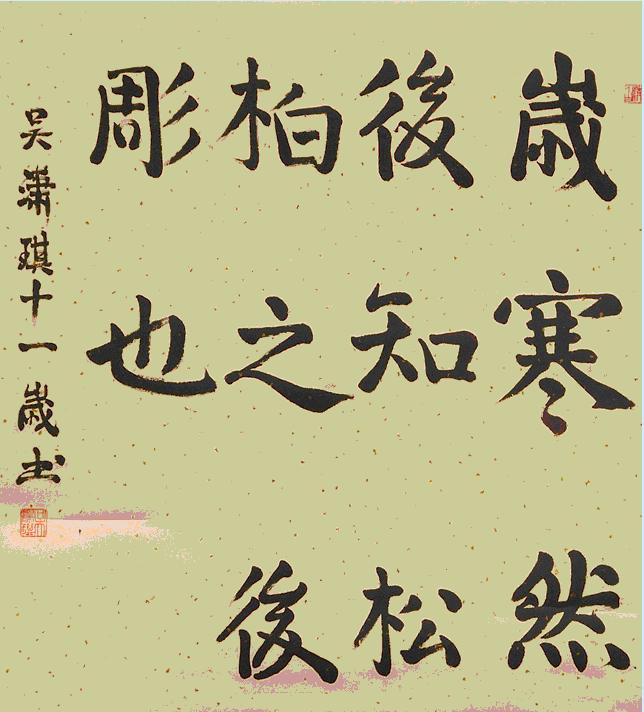 歲寒然
後知松
柏之後
彫也
吴蕭琪十一歲书